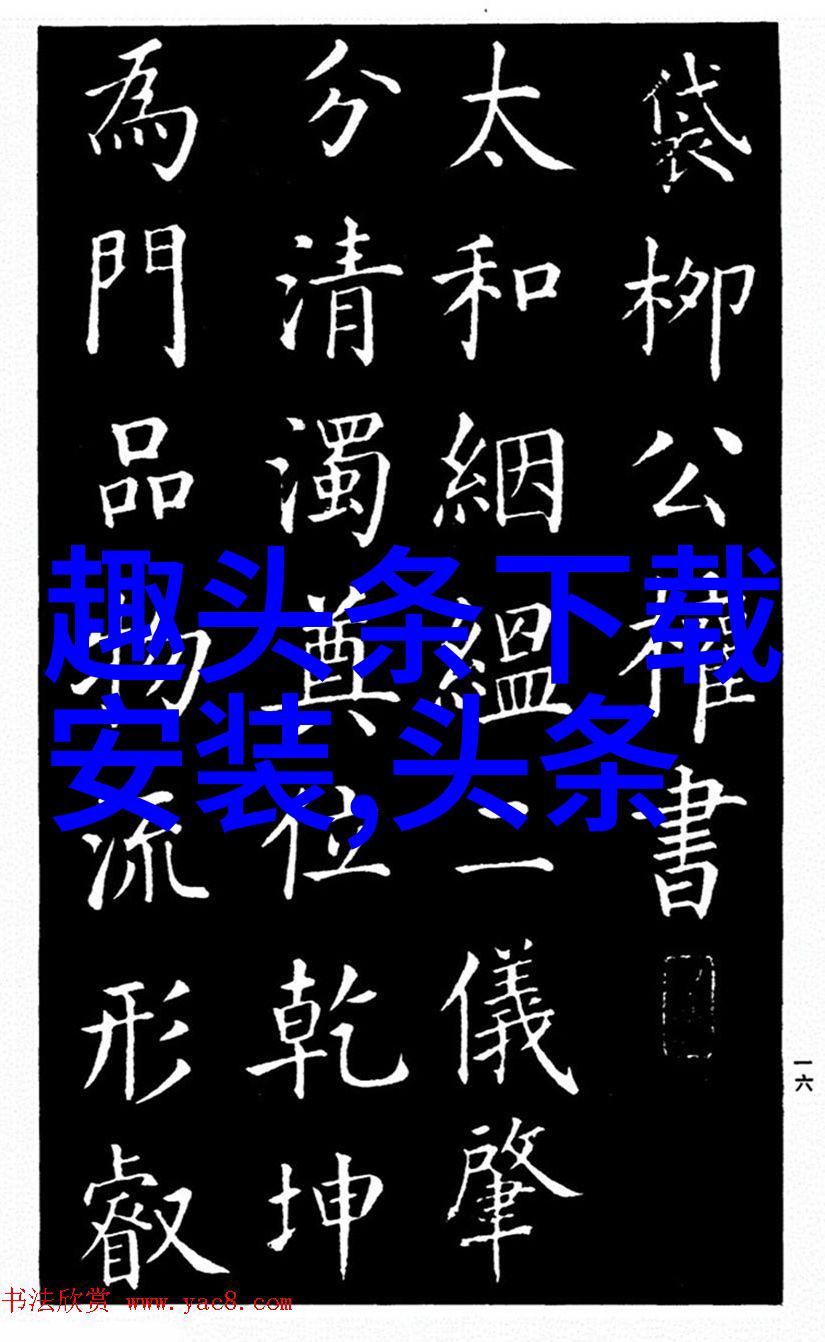 袋柳公權書
太和絪緼二儀肇
分清濁奠位乾坤
為門品物流形叡
趣头条下载
安装,头条
一六
书法欣赏 www.yac8.com